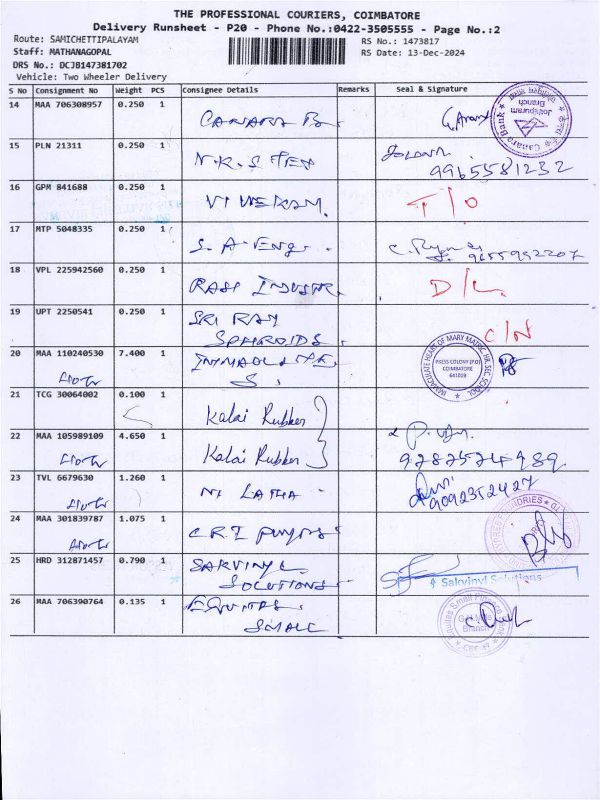 THE PROFESSIONAL COURIERS, COIMBATORE
Delivery Runsheet - P20 - Phone No.:0422-3505555 - Page No.:2
Route: SAMICHETTIPALAYAM RS No.: 1473817
Staff: MATHANAGOPAL RS Date: 13-Dec-2024
DRS No.: DCJB147381702
Vehicle: Two Wheeler Delivery
S No Consignment No Weight PCS Consignee Details Remarks Seal & Signature
14 MAA 706308957 0.250 1 CANARA B
Canara Bank
Branch
15 PLN 21311 0.250 1 N.K.S TEX
9965581232
16 GPM 841688 0.250 1 VIVEKAM. T/O
17 MTP 5048335 0.250 1 S.A-Eng.
9655952207
18 VPL 225942560 0.250 1 RASI INDUSTR. D/L
19 UPT 2250541 0.250 1 SRI RAM
SPHEROIDS. C/N
20 MAA 110240530 7.400 1
IMMACULATE HEART OF MARY MATRIC. HR. SEC. SCHOOL
PRESS COLONY (P.O)
COIMBATORE
641019
21 TCG 30064002 0.100 1 Kalai Rubber
22 MAA 105989109 4.650 1 Kalai Rubber
9282524989
23 TVL 6679630 1.260 1 NI LATHA
9092352427
24 MAA 301839787 1.075 1 C.R.I pumps
25 HRD 312871457 0.790 1 SARVINYL
SOLUTIONS
Sakvinyl Solutions
26 MAA 706390764 0.135 1 EQUITAS.
SMALL
Equitas Small Finance Bank
Branch